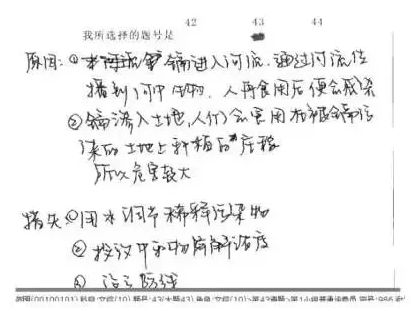 42 43 44
我所选择的题号是
原因：①镉进入河流，通过河流传
播到河中生物，人再食用后便会感染
②镉渗入土地，人们会食用在被镉污
染的土地上种植的庄稼
所以危害较大
措失：①用水调节稀释污染物
②投放中和物质解浓度
③设立防线